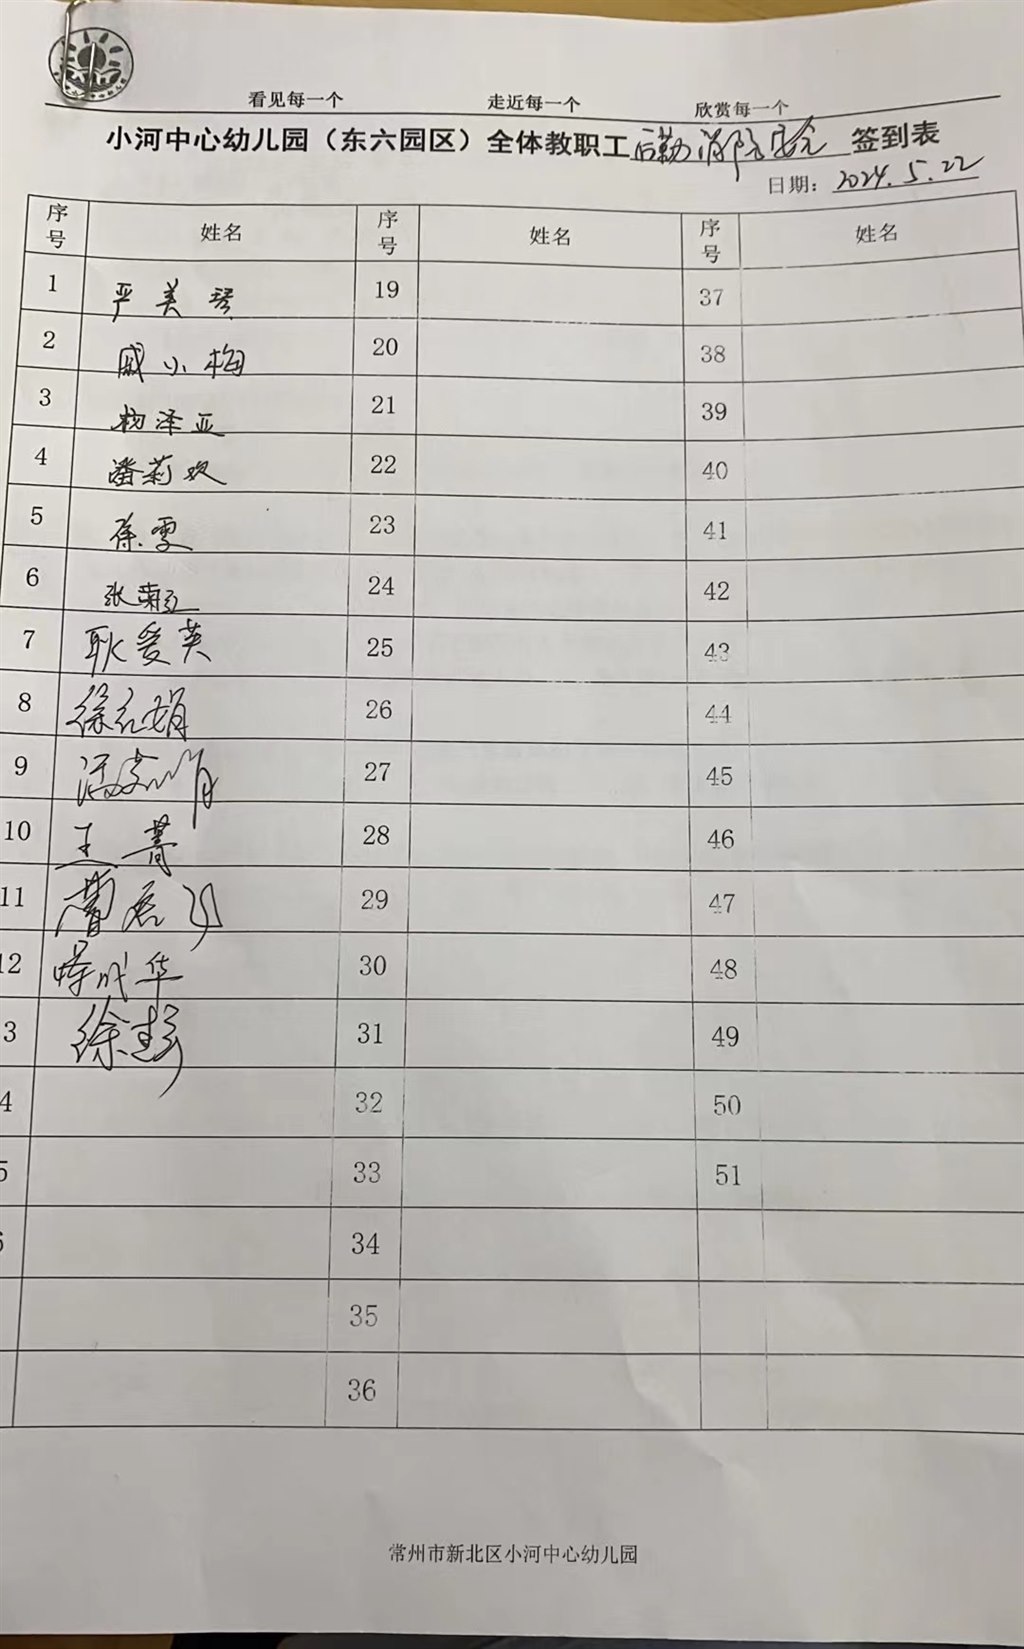 看见每一个 走近每一个 欣赏每一个
小河中心幼儿园（东六园区）全体教职工后勤消防安全签到表
日期：2024.5.22
序号 姓名 序号 姓名 序号 姓名
1 严美琴 19 37
2 戚小梅 20 38
3 杨泽亚 21 39
4 潘莉欢 22 40
5 徐雯 23 41
6 张 24 42
7 耿爱英 25 43
8 徐红娟 26 44
9 27 45
10 王菁 28 46
11 29 47
12 华 30 48
3 徐 31 49
4 32 50
5 33 51
6 34
35
36
常州市新北区小河中心幼儿园